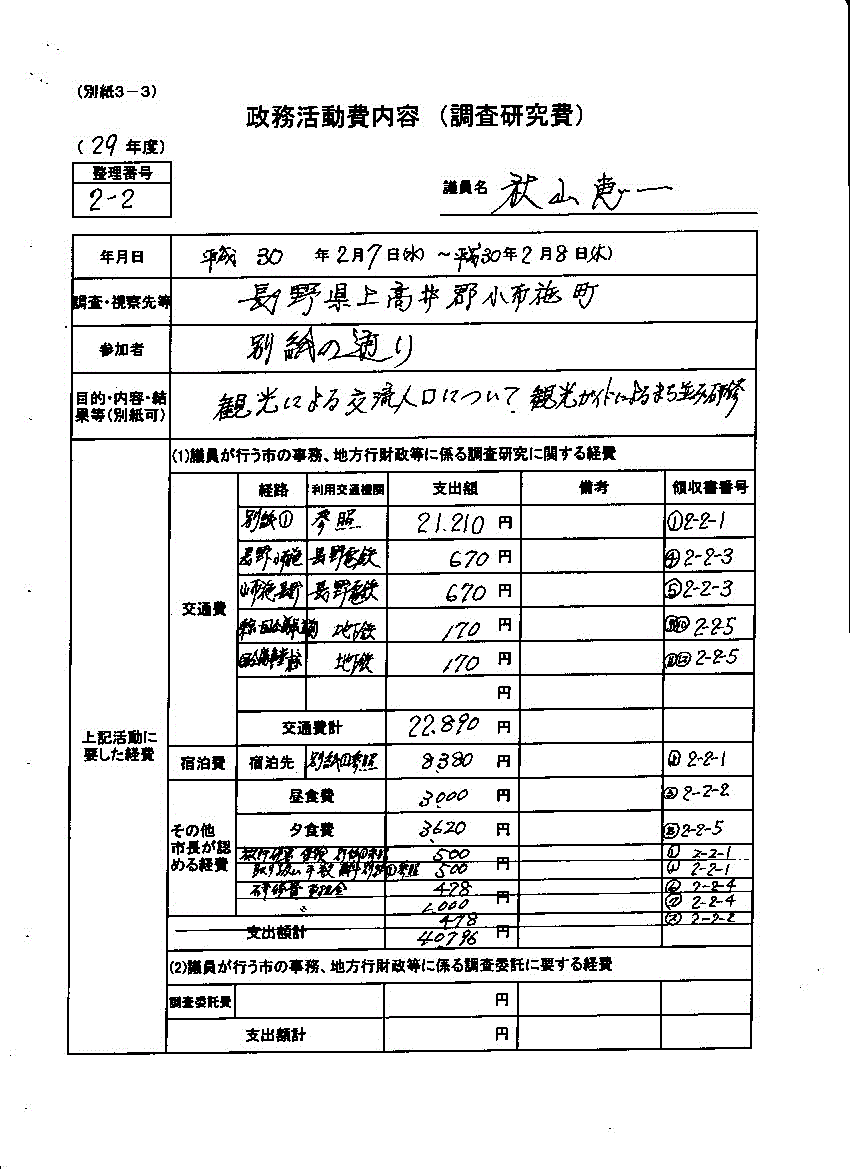 (別紙3-3)
政務活動費内容 (調査研究費)
( 29 年度)
整理番号
2-2
議員名 秋山 恵一
年月日 平成 30 年 2月 7日(水) ~平成30年 2月 8日(木)
調査・視察先等 長野県上高井郡小布施町
参加者 別紙の通り
目的・内容・結果等(別紙可) 観光による交流人口について、観光ガイドによるまち並み研修
上記活動に要した経費
(1)議員が行う市の事務、地方行財政等に係る調査研究に関する経費
経路 利用交通機関 支出額 備考 領収書番号
交通費
別紙① 参照 21.210 円 ①2-2-1
長野小布施 長野電鉄 670 円 ④2-2-3
小布施長野 長野電鉄 670 円 ⑤2-2-3
地下鉄 170 円 2-2-5
地下鉄 170 円 2-2-5
円
交通費計 22.890 円
宿泊費 宿泊先 別紙①参照 8380 円 2-2-1
その他市長が認める経費
昼食費 3000 円 2-2-2
夕食費 3620 円 2-2-5
保険 別紙①参照 500 円 ① 2-2-1
手数料 別紙①参照 500 2-2-1
研修費 478 円 2-2-4
〃 1,000 ⑦ 2-2-4
478 2-2-2
支出額計 40796 円
(2)議員が行う市の事務、地方行財政等に係る調査委託に要する経費
調査委託費 円
支出額計 円